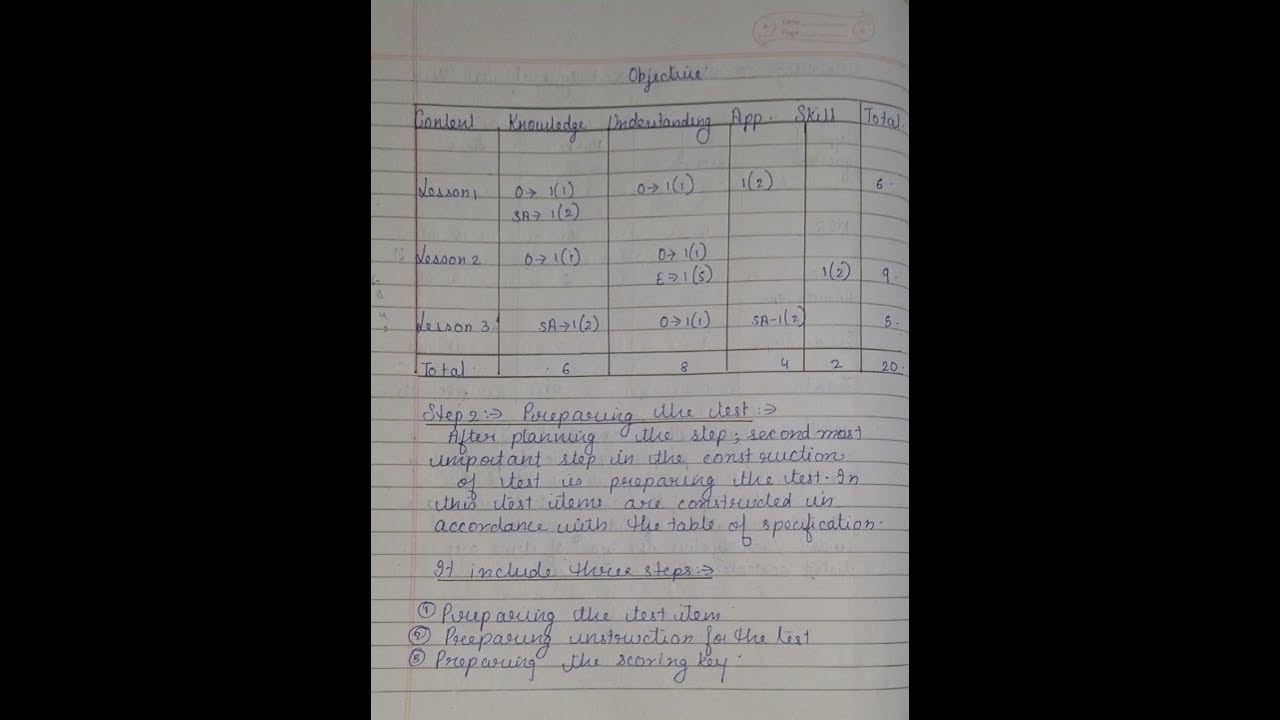 Objective
Content Knowledge Understanding App. Skill Total.
Lesson 1 O→ 1(1) O→ 1(1) 1(2) 6.
SA→ 1(2)
Lesson 2 O→ 1(1) O→ 1(1)
E→ 1(5) 1(2) 9.
Lesson 3. SA→ 1(2) O→ 1(1) SA-1(2) 5.
Total 6 8 4 2 20.
Step 2:→ Preparing the test:→
After planning the step; second most
important step in the construction
of test is preparing the test. In
this test items are constructed in
accordance with the table of specification.
It include three steps:→
① Preparing the test item
② Preparing instruction for the test
③ Preparing the scoring key.